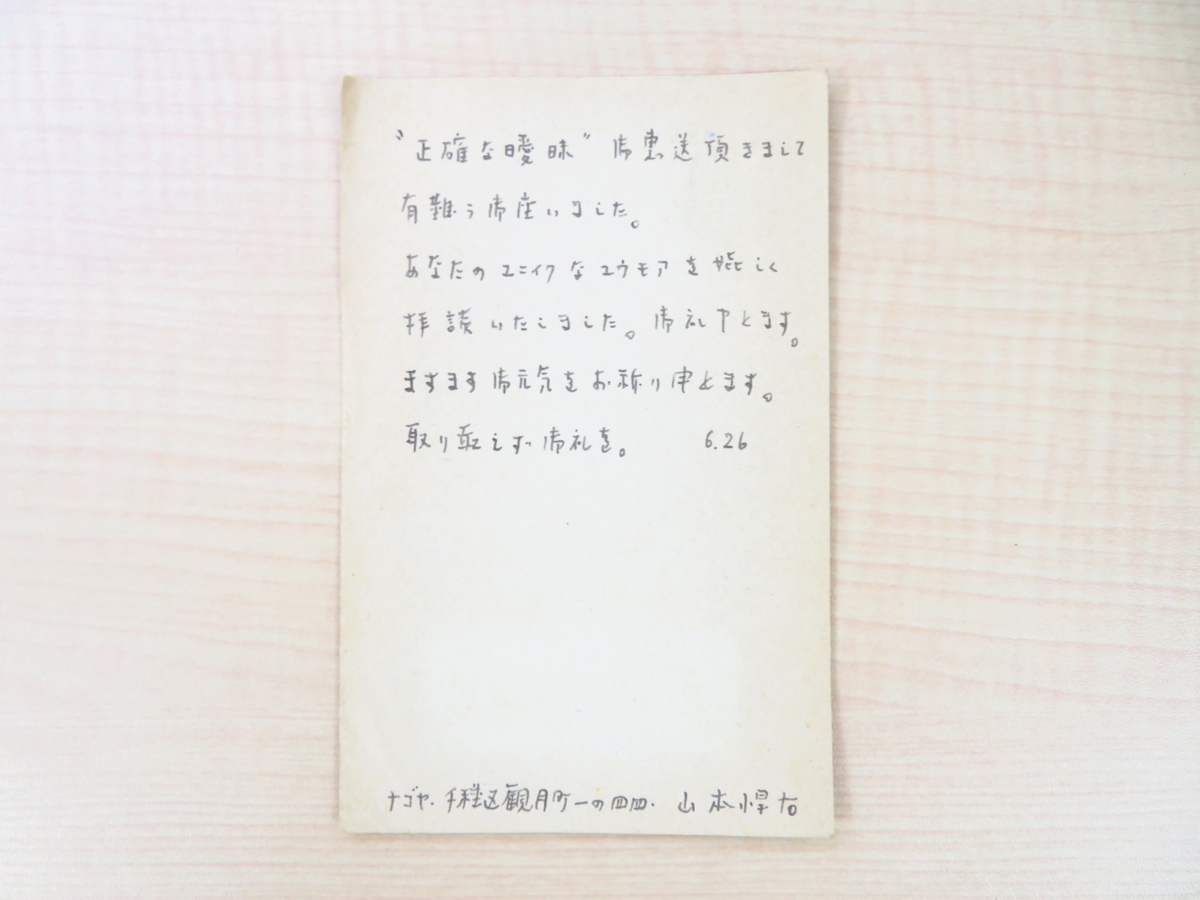 "正確な曖昧" 御恵送頂きまして
有難う御座いました。
あなたのユニイクなユウモアを娯しく
拝読いたしました。御礼申上ます。
ますます御元気をお祈り申上ます。
取り敢えず御礼を。 6.26
ナゴヤ.千種区観月町一の四四. 山本悍右